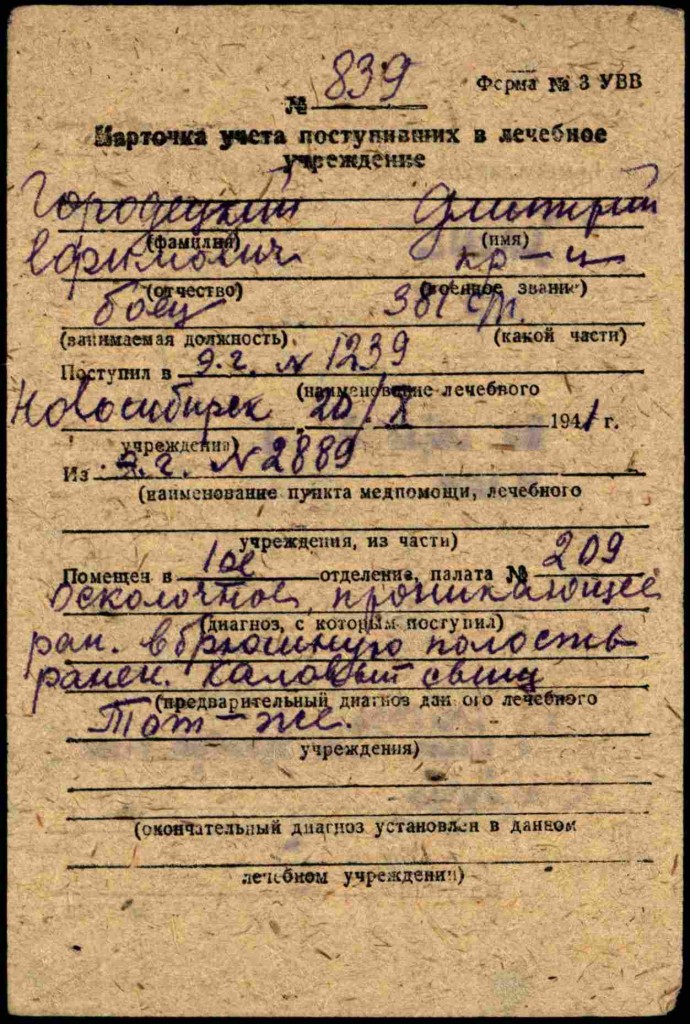 № 839
Форма № 3 УВВ
Карточка учета поступивших в лечебное
учреждение
Городецкий Дмитрий
(фамилия) (имя)
Ефимович кр-ц
(отчество) (военное звание)
боец 381 сп.
(занимаемая должность) (какой части)
Поступил в э.г. № 1239
(наименование лечебного
Новосибирск 20/X 1941 г.
учреждения)
Из э.г. № 2889
(наименование пункта медпомощи, лечебного
учреждения, из части)
Помещен в 1ое отделение, палата № 209
Осколочное, проникающее
(диагноз, с которым поступил)
ран. в брюшную полость
ранен. Каловый свищ
(предварительный диагноз данного лечебного
Тот-же.
учреждения)
(окончательный диагноз установлен в данном
лечебном учреждении)